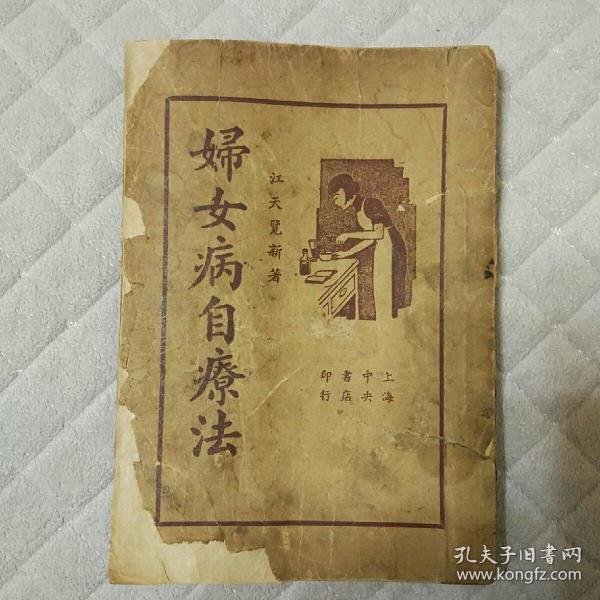 婦女病自療法
江天覽新著
上海
中央
書店
印行
孔夫子旧書网
www.kongfz.com